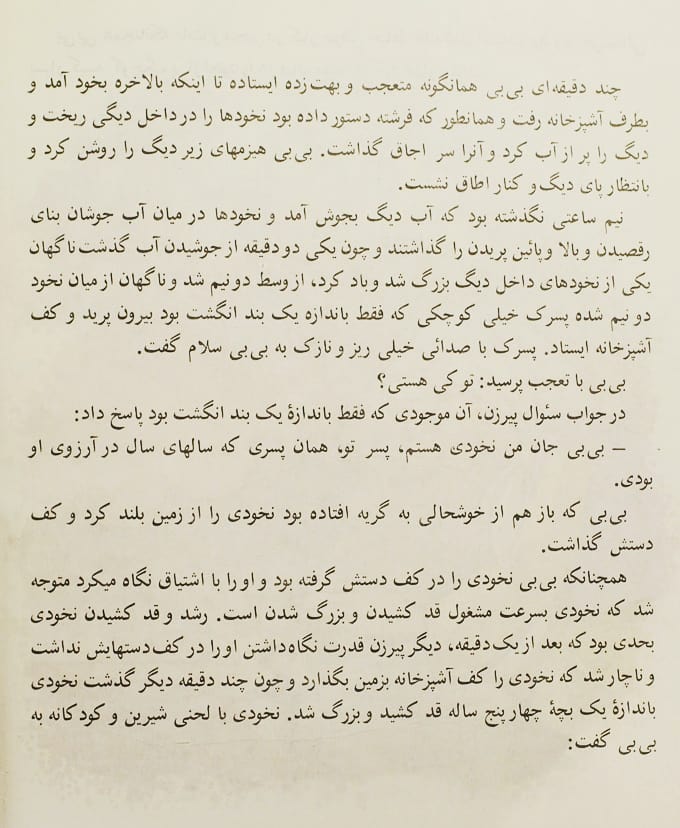 چند دقیقه‌ای بی‌بی همانگونه متعجب و بهت‌زده ایستاده تا اینکه بالاخره بخود آمد و
بطرف آشپزخانه رفت و همانطور که فرشته دستور داده بود نخودها را در داخل دیگی ریخت و
دیگ را پر از آب کرد و آنرا سر اجاق گذاشت. بی‌بی هیزمهای زیر دیگ را روشن کرد و
بانتظار پای دیگ و کنار اطاق نشست.
نیم ساعتی نگذشته بود که آب دیگ بجوش آمد و نخودها در میان آب جوشان بنای
رقصیدن و بالا و پائین پریدن را گذاشتند و چون یکی دو دقیقه از جوشیدن آب گذشت ناگهان
یکی از نخودهای داخل دیگ بزرگ شد و باد کرد، از وسط دو نیم شد و ناگهان از میان نخود
دو نیم شده پسرک خیلی کوچکی که فقط باندازه یک بند انگشت بود بیرون پرید و کف
آشپزخانه ایستاد. پسرک با صدائی خیلی ریز و نازک به بی‌بی سلام گفت.
بی‌بی با تعجب پرسید: تو کی هستی؟
در جواب سئوال پیرزن، آن موجودی که فقط باندازهٔ یک بند انگشت بود پاسخ داد:
– بی‌بی جان من نخودی هستم، پسر تو، همان پسری که سالهای سال در آرزوی او
بودی.
بی‌بی که باز هم از خوشحالی به گریه افتاده بود نخودی را از زمین بلند کرد و کف
دستش گذاشت.
همچنانکه بی‌بی نخودی را در کف دستش گرفته بود و او را با اشتیاق نگاه میکرد متوجه
شد که نخودی بسرعت مشغول قد کشیدن و بزرگ شدن است. رشد و قد کشیدن نخودی
بحدی بود که بعد از یک دقیقه، دیگر پیرزن قدرت نگاه داشتن او را در کف دستهایش نداشت
و ناچار شد که نخودی را کف آشپزخانه بزمین بگذارد و چون چند دقیقه دیگر گذشت نخودی
باندازهٔ یک بچهٔ چهار پنج ساله قد کشید و بزرگ شد. نخودی با لحنی شیرین و کودکانه به
بی‌بی گفت: